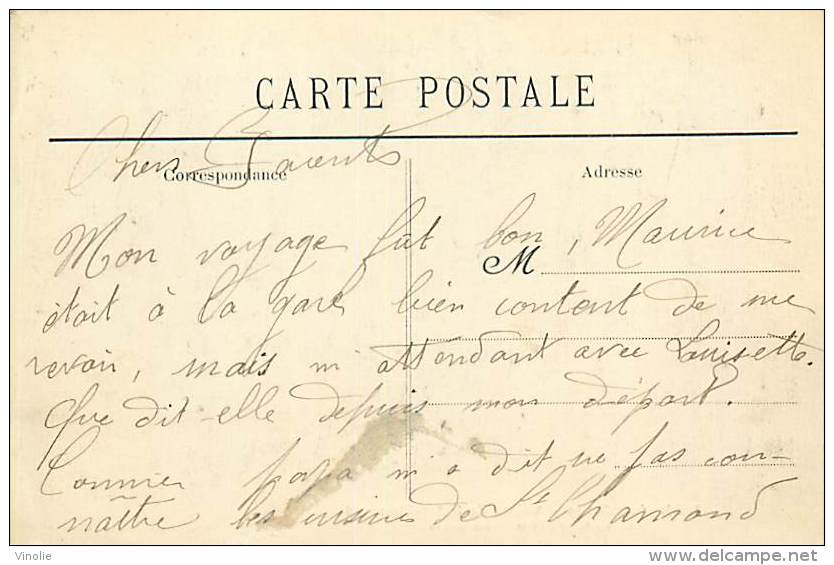 CARTE POSTALE
Chers Parents
Correspondance
Adresse
Mon voyage fut bon, Maurice
M
était à la gare bien content de me
revoir, mais m'attendant avec Louisette.
Que dit-elle depuis mon départ.
Comme papa m'a dit ne pas con-
naître les usines de St Chamond
Vinolie
delcampe.net